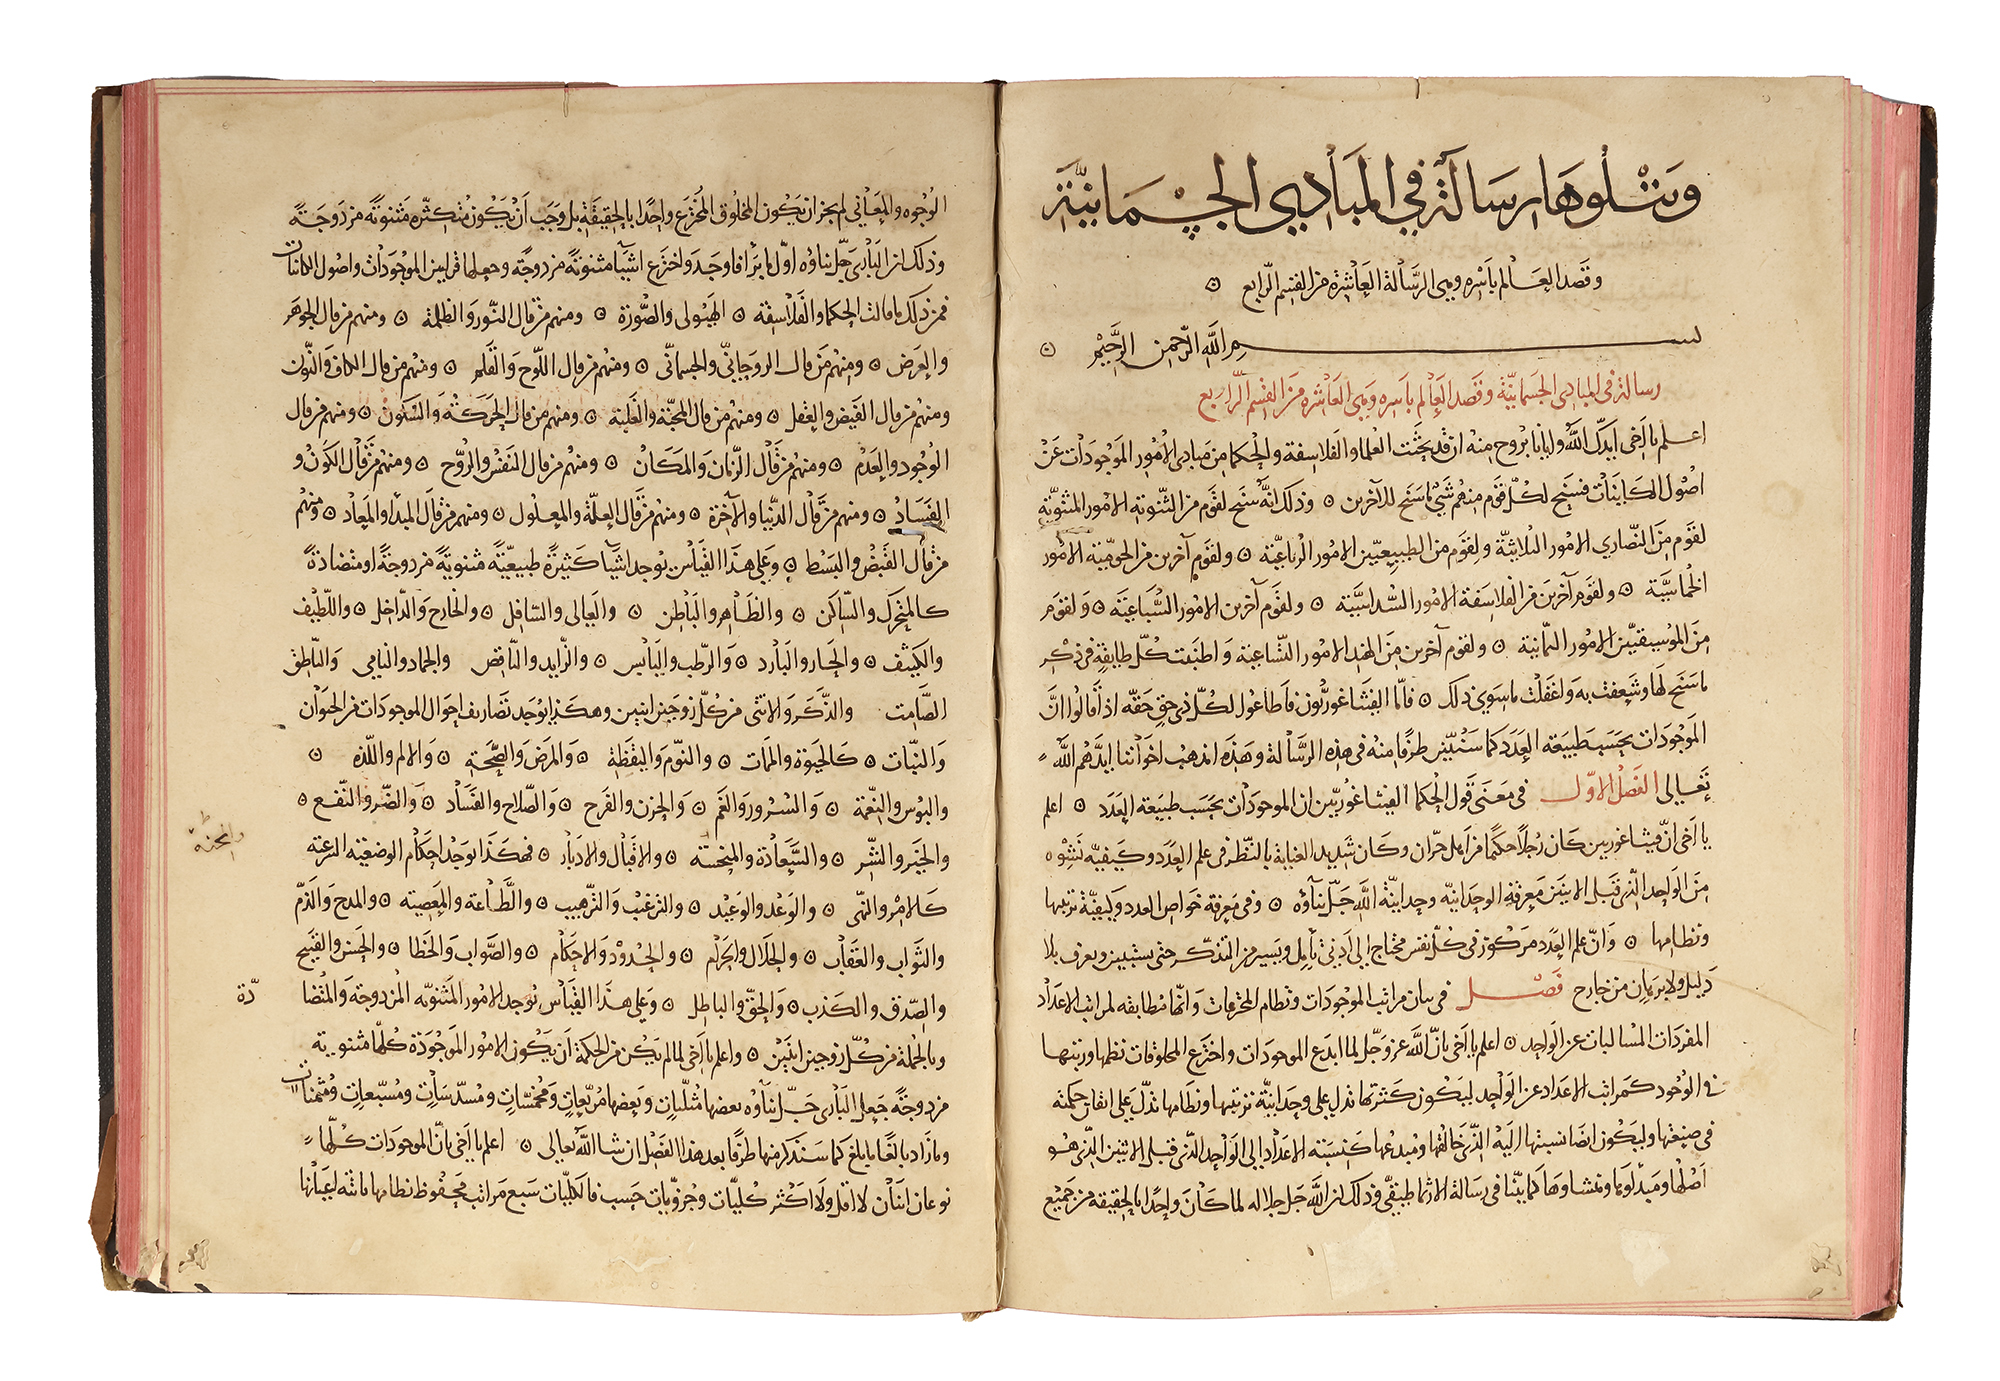 ويتلوها رسالة في المبادي الجسمانية
وقصد العالم باسره وهي الرسالة العاشرة من القسم الرابع ۞
بسم الله الرحمن الرحيم ۞
رسالة في المبادي الجسمانية وقصد العالم باسره وهي العاشرة من القسم الرابع
اعلم يا اخي ايدك الله وايانا بروح منه ان قد بحثت العلما والفلاسفة والحكما من مبادي الامور الموجودات عن
اصول الكاينات فسنح لكل قوم منهم شي ما سنح للآخرين ۞ وذلك انه سنح لقوم من الثنوية الامور المثنوية
لقوم من النصاري الامور الثلاثية ولقوم من الطبيعيين الامور الرباعية ۞ ولقوم آخرين من الخرمية الامور
الخماسية ۞ ولقوم آخرين من الفلاسفة الامور السداسية ۞ ولقوم آخرين الامور السباعية ۞ ولقوم
من الموسيقيين الامور الثمانية ۞ ولقوم آخرين من الهند الامور التساعية واطنبت كل طايفة في ذكر
ما سنح لها وشعفت به واغفلت ما سوى ذلك ۞ فاما الفيثاغوريون فاطاعوا لكل ذي حق حقه اذ قالوا ان
الموجودات بحسب طبيعة العدد كما سنبين طرفا منه في هذه الرسالة وهذه مذهب اخواننا ايدهم الله
تعالى الفصل الاول في معنى قول الحكما الفيثاغوريين ان الموجودات بحسب طبيعة العدد ۞ اعلم
يا اخي ان فيثاغورس كان رجلا حكيما من اهل حران وكان شديد العناية بالنظر في علم العدد وكيفية نشوه
من الواحد الذي قبل الاثنين معرفة الوحدانية وحدانية الله جل ثناؤه ۞ وفي معرفة خواص العدد وكيفية ترتيبها
ونظامها ۞ وان علم العدد مركوز في كل نفس محتاج الى ادنى تأمل ويسير من التذكر حتى يستبين ويعرف بلا
دليل ولا برهان من خارج فصل في بيان مراتب الموجودات ونظام المخترعات وانها مطابقه لمراتب الاعداد
المفردات المنسالبات عن الواحد ۞ اعلم يا اخي بان الله عز وجل لما ابدع الموجودات واخترع المخلوقات نظمها ورتبها
في الوجود كمراتب الاعداد عن الواحد ليكون كثرتها تدل على وحدانيته ترتيبها ونظامها تدل على اتقان حكمته
في صنعتها وليكون ايضا نسبتها اليه الذي خالقها ومبدعها كنسبته الاعداد الى الواحد الذي قبل الاثنين الذي هو
اصلها ومبدأوها ومنشاوها كما بينا في رسالة الارثماطيقي وذلك ان الله جل جلاله لما كان واحدا بالحقيقة من جميع
الوجوه والمعاني لم يجز ان يكون المخلوق المخترع واحدا بالحقيقة بل وجب ان يكون متكثره مثنوية مزدوجة
وذلك ان الباري جل ثناؤه اول ما برأ فاوجد واخترع اشيآ مثنوية مزدوجة وجعلها قرابين الموجودات واصول الكائنات
فمن ذلك ما قالت الحكما والفلاسفة ۞ الهيولى والصورة ۞ ومنهم من قال النور والظلمة ۞ ومنهم من قال الجوهر
والعرض ۞ ومنهم من قال الروحاني والجسماني ۞ ومنهم من قال اللوح والقلم ۞ ومنهم من قال الكاف والنون
ومنهم من قال الفيض والعقل ۞ ومنهم من قال المحبة والغلبة ۞ ومنهم من قال الحركة والسكون ۞ ومنهم من قال
الوجود والعدم ۞ ومنهم من قال الزمان والمكان ۞ ومنهم من قال النفس والروح ۞ ومنهم من قال الكون و
الفساد ۞ ومنهم من قال الدنيا والآخرة ۞ ومنهم من قال العلة والمعلول ۞ ومنهم من قال المبدأ والمعاد ۞ ومنهم
من قال القبض والبسط ۞ وعلى هذا القياس يوجد اشيآ كثيرة طبيعية مثنوية مزدوجة او متضادة
كالمتحرك والساكن ۞ والظاهر والباطن ۞ والعالى والسافل ۞ والخارج والداخل ۞ واللطيف
والكثيف ۞ والحار والبارد ۞ والرطب واليابس ۞ والزايد والناقص والجماد والنامى والناطق
الصامت والذكر والانثى من كل زوجين اثنين وهكذا يوجد تصاريف احوال الموجودات من الحيوان
والنبات ۞ كالحيوة والممات ۞ والنوم واليقظة ۞ والمرض والصحة ۞ والالم واللذه ۞
والبوس والنعمة ۞ والسرور والغم ۞ والحزن والفرح ۞ والصلاح والفساد ۞ والضر والنفع ۞
والخير والشر ۞ والسعادة والمنحسة ۞ والاقبال والادبار ۞ فهكذا يوجد احكام الوضعية الشرعية
كالامر والنهى ۞ والوعد والوعيد ۞ والترغيب والترهيب ۞ والطاعة والمعصية ۞ والمدح والذم
والثواب والعقاب ۞ والحلال والحرام ۞ والحدود والاحكام ۞ والصواب والخطا ۞ والحسن والقبيح
والصدق والكذب ۞ والحق والباطل ۞ وعلى هذا القياس يوجد الامور المثنويه المزدوجة والمتضا دة
وبالجملة من كل زوجين اثنين ۞ واعلم يا اخي لما لم يكن من الحكمة ان يكون الامور الموجودة كلها مثنوية
مزدوجة جعل الباري جل ثناؤه بعضها مثلثات وبعضها مربعات ومخمسات ومسدسات ومسبعات ومثمنات
وما زاد بالغا ما بلغ كما سنذكر منها طرفا بعد هذا الفصل ان شا الله تعالى ۞ اعلم يا اخي بان الموجودات كلها
نوعان اثنان لا اقل ولا اكثر كليات وجزويات حسب فالكليات سبع مراتب محفوظ نظامها ثابتة اعيانها